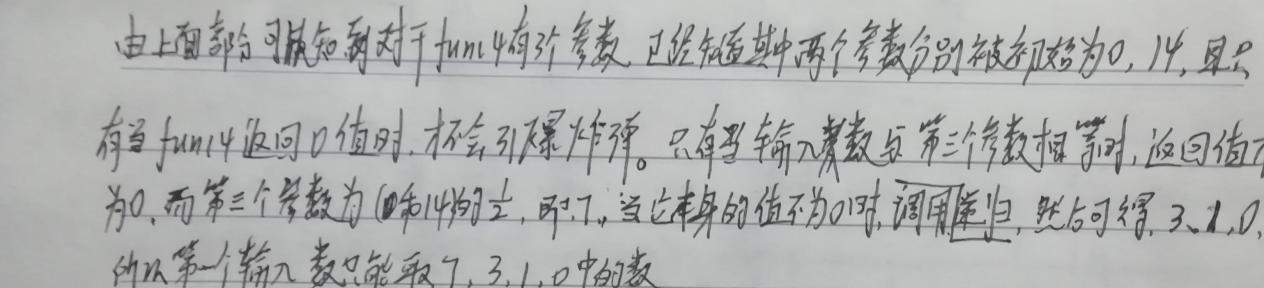 由上面部分可液知到对于func4有3个参数,已经知道其中两个参数分别被初始为0,14,且只
有当func4返回0值时,才不会引爆炸弹。只有当输入参数与第三个参数相等时,返回值才
为0,而第三个参数为(0和14)的1/2,即7,当它本身的值不为0时,调用递归,然后可得,3、1、0,
所以第一个输入数只能取7,3,1,0中的数